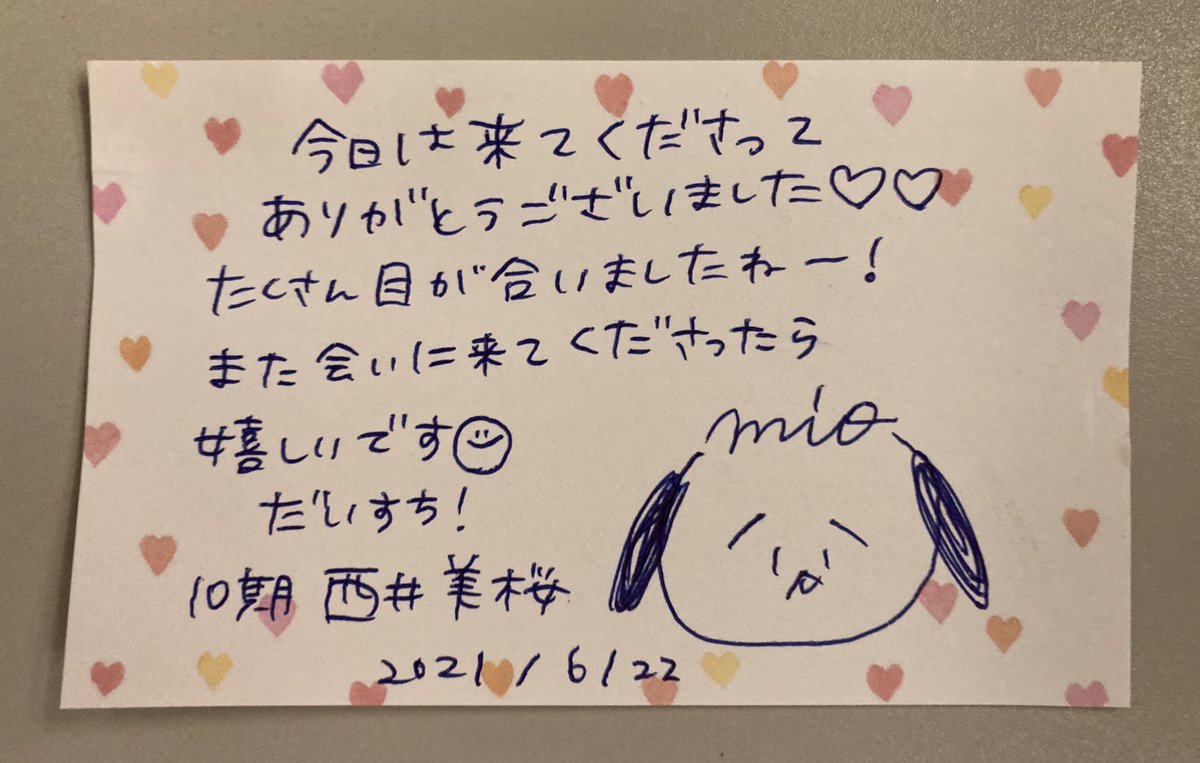 今日は来てくださって
ありがとうございました♡♡
たくさん目が合いましたねー!
また会いに来てくださったら
嬉しいです☺
だいすち!
mio
10期 西井美桜
2021/6/22